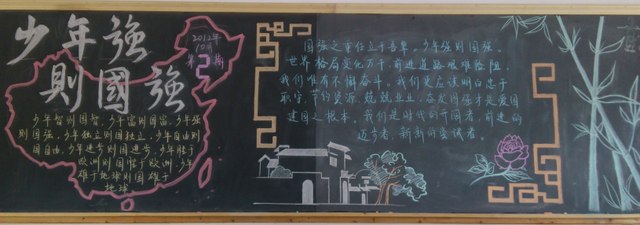 少年強
則國強
2012年
10月
第2期
少年智则国智,少年富则国富,少年强
则国强,少年独立则国独立,少年自由则
国自由,少年进步则国进步,少年胜于
欧洲则国胜于欧洲,少年
雄于地球则国雄于
地球。
国强之重任立于吾辈,少年强则国强。
世界格局变化万千,前进道路艰难险阻,
我们唯有不懈奋斗。我们更应该明白忠于
职守,节约资源,兢兢业业,奋发图强才是爱国
建国之根本。我们是时代的开园者,前进的
迈步者,新新的尝试者。